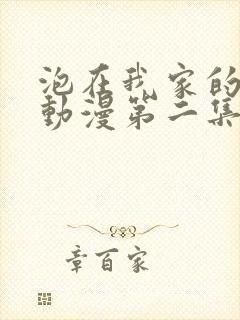 泡在我家的
動漫第二集
章百家